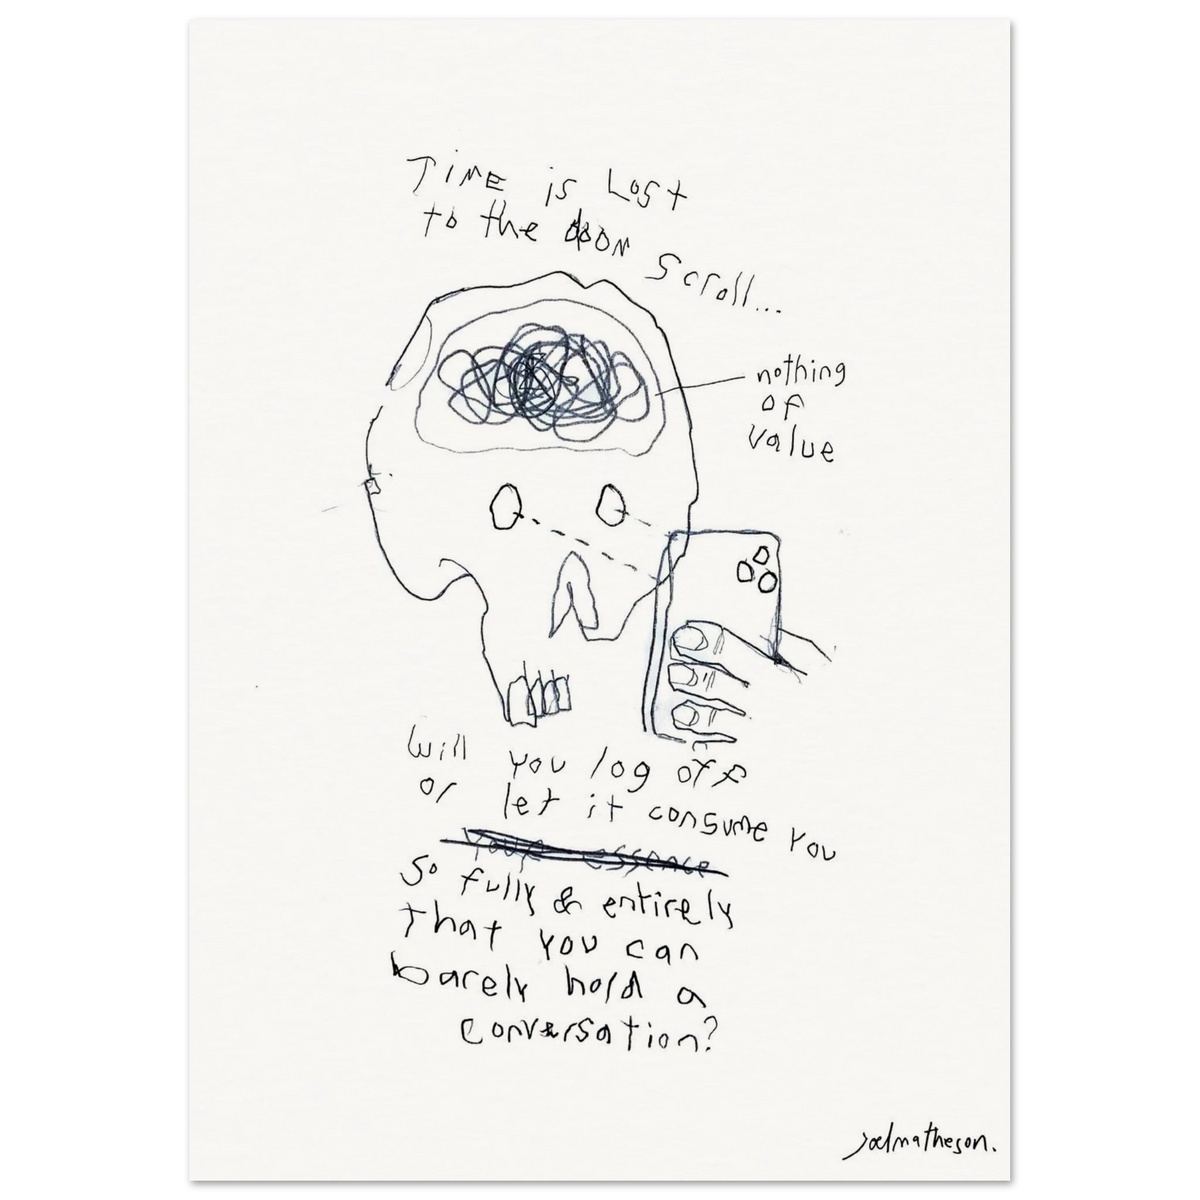 TiME is Lost
to the doom scroll...
nothing
of
value
will you log off
or let it consume you
your essence
so fully & entirely
that you can
barely hold a
conversation?
joelmatheson.